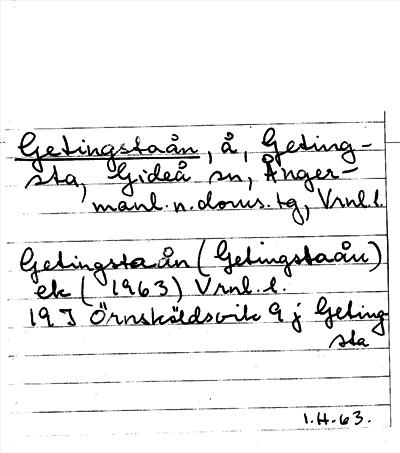 Getingstaån, å, Geting-
sta, Gideå sn, Ånger-
manl. n. doms. tg, Vrnl. l.
Getingstaån (Getingstaån)
ek (1963) Vrnl. l.
19 J Örnsköldsvik 9 j Geting
sta
1.H.63.